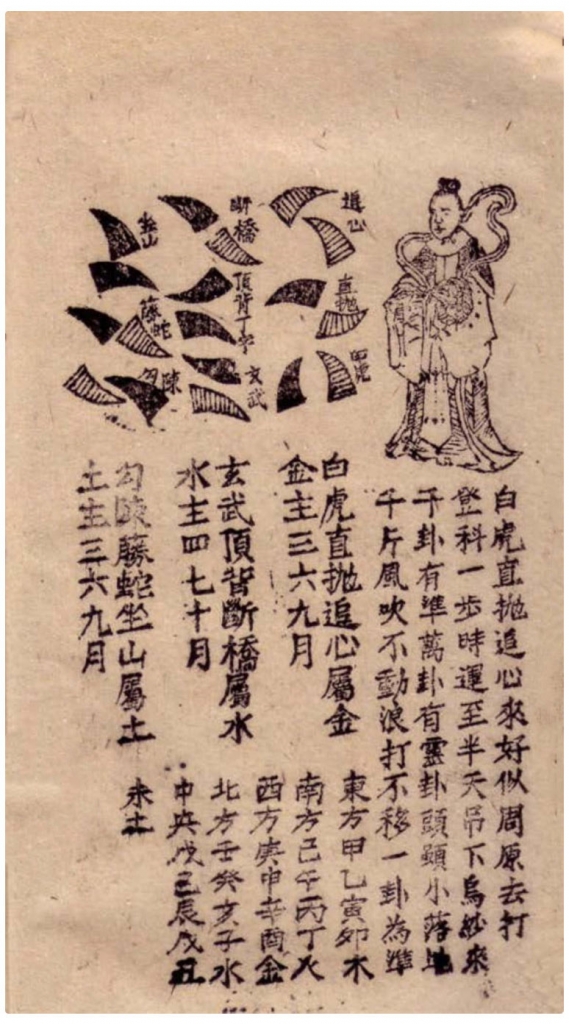 追心
直抛
白虎
斷橋
頂背丁字
玄武
坐山
藤蛇
勾陳
白虎直抛追心來好似周原去打
登科一步時運至半天吊下烏紗來
千卦有準萬卦有靈卦頭顯小落地
千斤風吹不動浪打不移一卦為準
白虎直抛追心屬金
金主三六九月
玄武頂背斷橋屬水
水主四七十月
勾陳藤蛇坐山屬土
土主三六九月
東方甲乙寅卯木
南方巳午丙丁火
西方庚申辛酉金
北方壬癸亥子水
中央戊己辰戌丑
未土